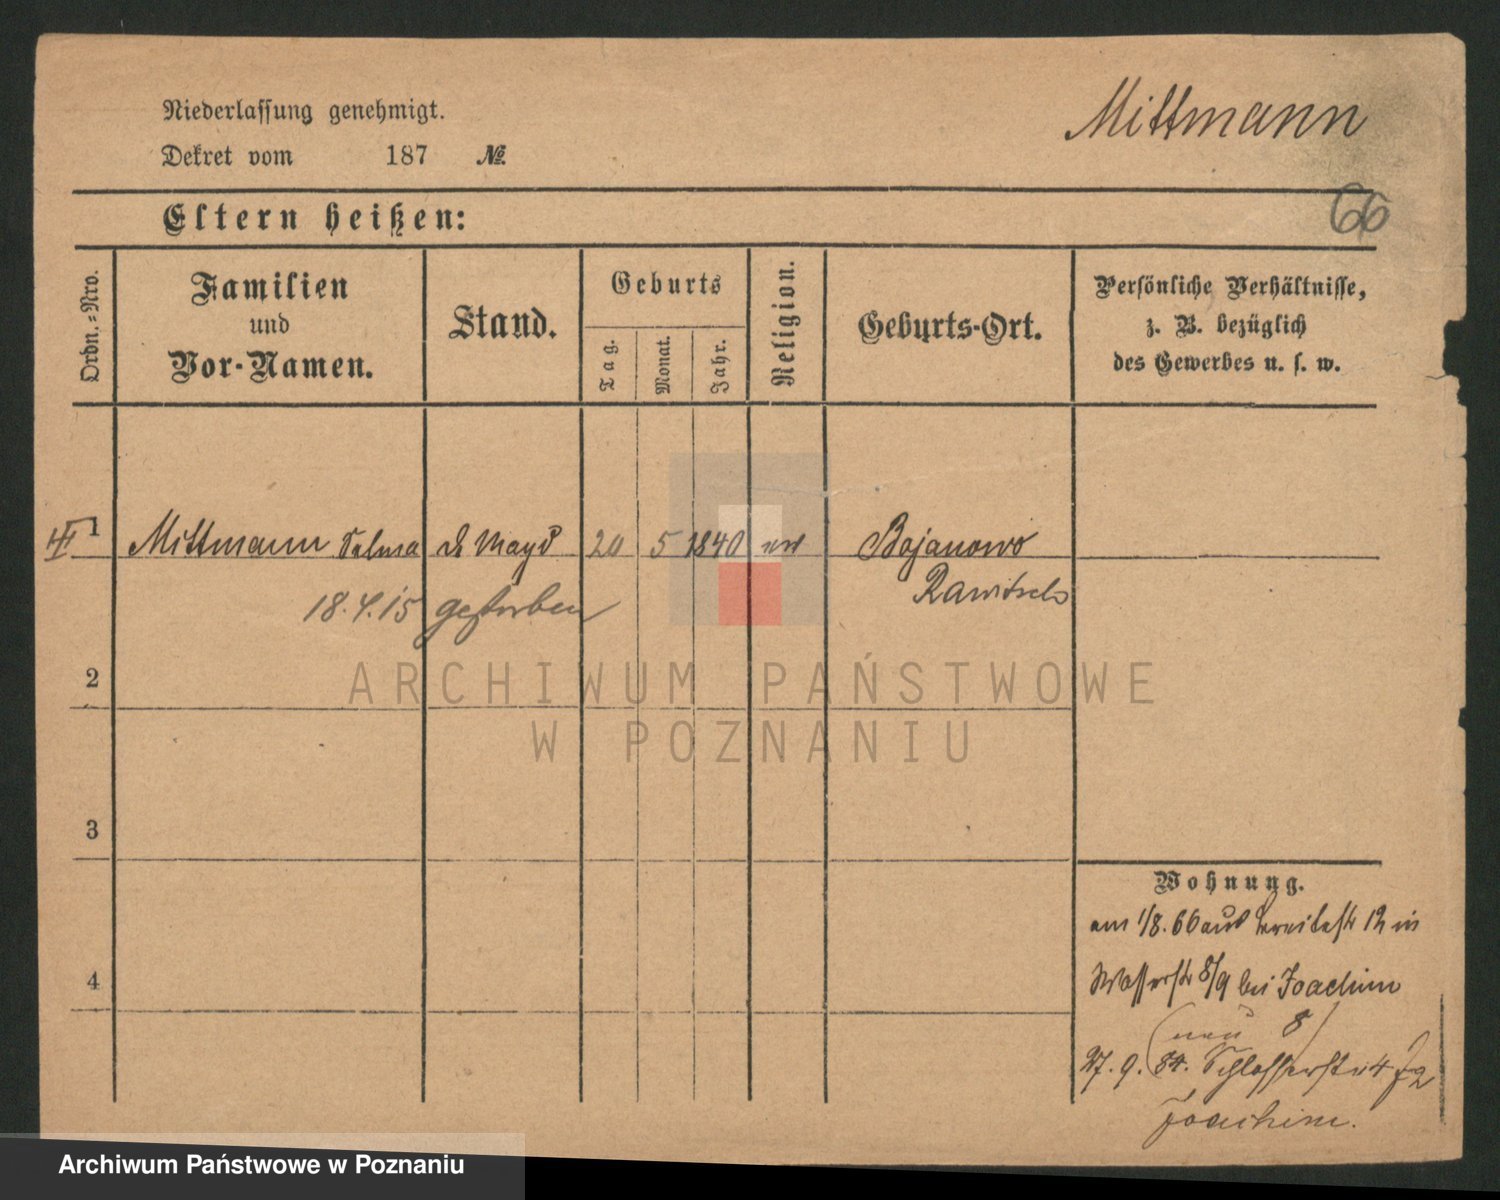 Niederlassung genehmigt.
Dekret vom 187 №
Mittmann
66
Eltern heißen:
Ordn.-Nro.
Familien
und
Vor-Namen.
Stand.
Geburts
Tag.
Monat.
Jahr.
Religion.
Geburts-Ort.
Persönliche Verhältnisse,
z. B. bezüglich
des Gewerbes u. s. w.
1 Mittmann Selma d Magd 20 5 1840 ev Bojanowo
18.4.15 gestorben Rawitsch
2
3
4
Wohnung.
am 1/8. 66 aus Breitestr 12 in
Wasserstr 8/9 bei Joachim
(neu 8)
27. 9. 84. Schlosserstr 4
Joachim.
ARCHIWUM PAŃSTWOWE
W POZNANIU
Archiwum Państwowe w Poznaniu